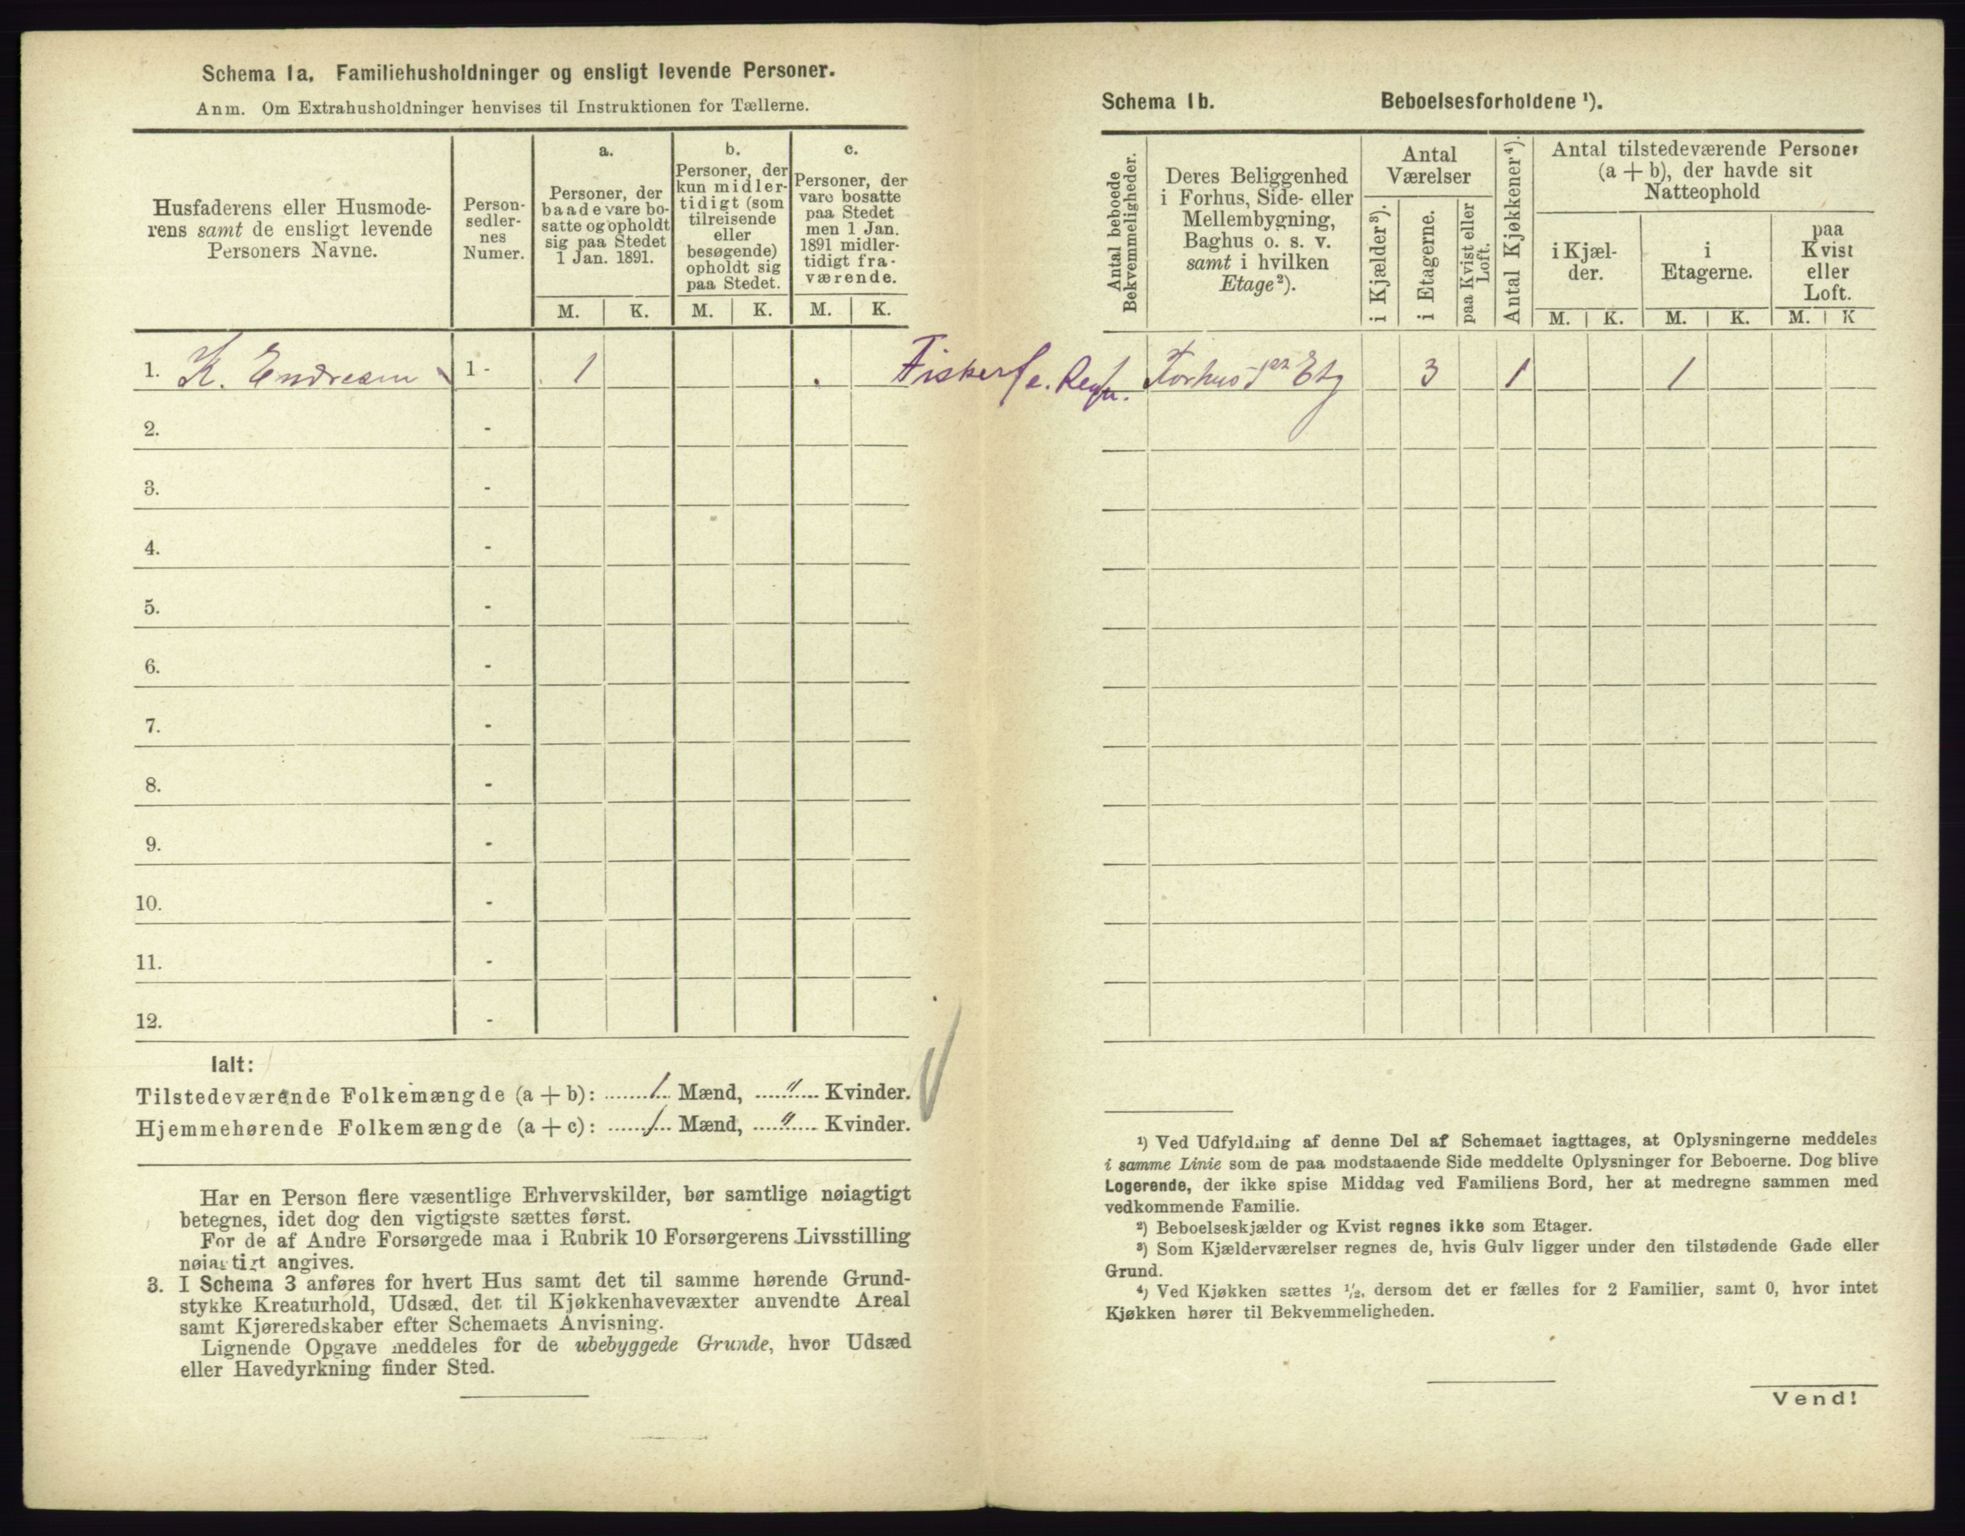 Schema 1a. Familiehusholdninger og ensligt levende Personer.
Anm. Om Extrahusholdninger henvises til Instruktionen for Tællerne.
Husfaderens eller Husmode-
rens samt de ensligt levende
Personers Navne.
Person-
sedler-
nes
Numer.
a.
Personer, der
baade vare bo-
satte og opholdt
sig paa Stedet
1 Jan. 1891.
b.
Personer, der
kun midler-
tidigt (som
tilreisende
eller
besøgende)
opholdt sig
paa Stedet.
c.
Personer, der
vare bosatte
paa Stedet
men 1 Jan.
1891 midler-
tidigt fra-
værende.
M. K. M. K. M. K.
1. K. Endresen 1 - 1
2. -
3. -
4. -
5. -
6. -
7. -
8. -
9. -
10. -
11. -
12. -
Ialt:
Tilstedeværende Folkemængde (a + b): 1 Mænd, " Kvinder.
Hjemmehørende Folkemængde (a + c): 1 Mænd, " Kvinder.
Har en Person flere væsentlige Erhvervskilder, bør samtlige nøiagtigt
betegnes, idet dog den vigtigste sættes først.
For de af Andre Forsørgede maa i Rubrik 10 Forsørgerens Livsstilling
nøiagtigt angives.
3. I Schema 3 anføres for hvert Hus samt det til samme hørende Grund-
stykke Kreaturhold, Udsæd, det til Kjøkkenhavevæxter anvendte Areal
samt Kjøreredskaber efter Schemaets Anvisning.
Lignende Opgave meddeles for de ubebyggede Grunde, hvor Udsæd
eller Havedyrkning finder Sted.
Schema 1b. Beboelsesforholdene ¹).
Antal beboede
Bekvemmeligheder.
Deres Beliggenhed
i Forhus, Side- eller
Mellembygning,
Baghus o. s. v.
samt i hvilken
Etage²).
Antal
Værelser
i Kjælder³).
i Etagerne.
paa Kvist eller
Loft.
Antal Kjøkkener⁴).
Antal tilstedeværende Personer
(a + b), der havde sit
Natteophold
i Kjæl-
der.
i
Etagerne.
paa
Kvist
eller
Loft.
M. K. M. K. M. K
Forhus Etg 3 1 1
¹) Ved Udfyldning af denne Del af Schemaet iagttages, at Oplysningerne meddeles
i samme Linie som de paa modstaaende Side meddelte Oplysninger for Beboerne. Dog blive
Logerende, der ikke spise Middag ved Familiens Bord, her at medregne sammen med
vedkommende Familie.
²) Beboelseskjælder og Kvist regnes ikke som Etager.
³) Som Kjælderværelser regnes de, hvis Gulv ligger under den tilstødende Gade eller
Grund.
⁴) Ved Kjøkken sættes ¹/₂, dersom det er fælles for 2 Familier, samt 0, hvor intet
Kjøkken hører til Bekvemmeligheden.
Vend!